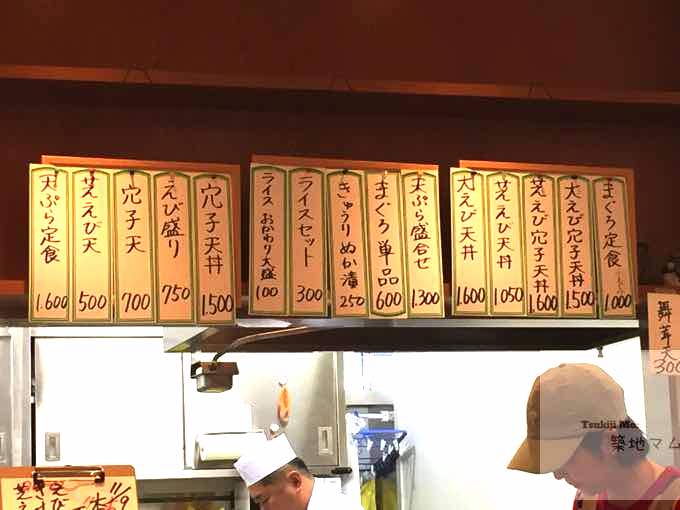 天ぷら定食 1.600
芝えび天 500
穴子天 700
えび盛り 750
穴子天丼 1.500
ライスおかわり大盛 100
ライスセット 300
きゅうりぬか漬 250
まぐろ単品 600
天ぷら盛合せ 1.300
大えび天丼 1.600
芝えび天丼 1.050
芝えび穴子天丼 1.600
大えび穴子天丼 1.500
まぐろ定食 1.000
舞茸天 300
Tsukiji Mo
築地マム
11/9